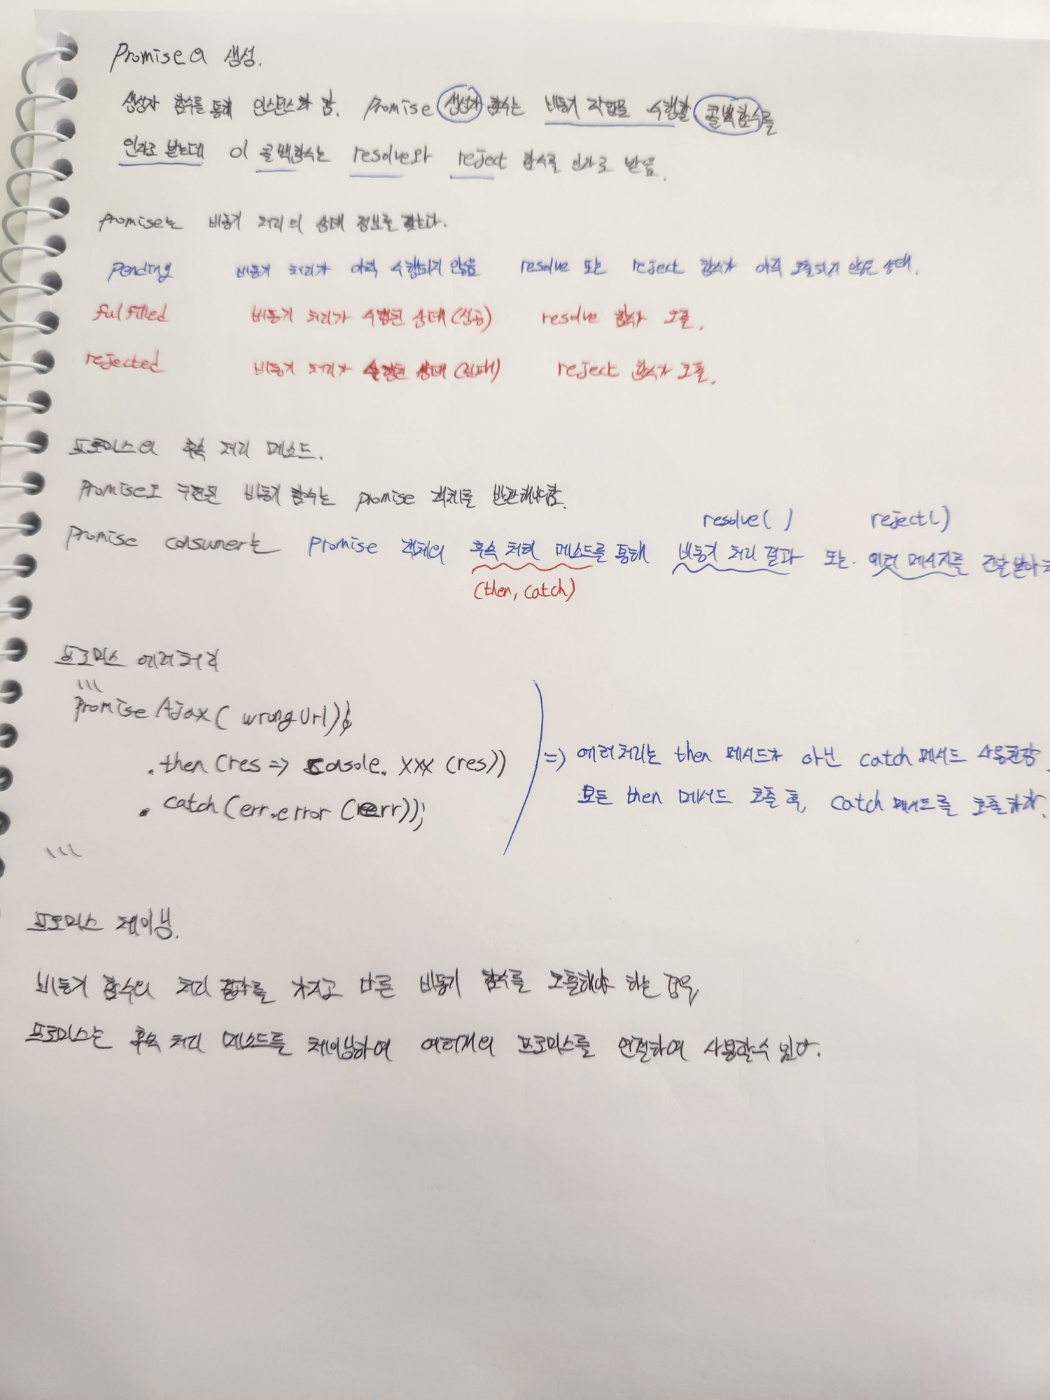 Promise의 생성.
생성자 함수를 통해 인스턴스화 함. Promise 생성자 함수는 비동기 작업을 수행할 콜백함수를
인자로 받는데 이 콜백함수는 resolve와 reject 함수를 인자로 받음.
Promise는 비동기 처리의 상태 정보를 갖는다.
pending 비동기 처리가 아직 수행되지 않음 resolve 또는 reject 함수가 아직 호출되지 않은 상태.
fulfilled 비동기 처리가 수행된 상태 (성공) resolve 함수 호출.
rejected 비동기 처리가 수행된 상태 (실패) reject 함수가 호출.
프로미스의 후속 처리 메소드.
Promise로 구현된 비동기 함수는 promise 객체를 반환해야함.
resolve( ) reject( )
Promise consumer는 promise 객체의 후속 처리 메소드를 통해 비동기 처리 결과 또는 에러 메시지를 전달 받아
(then, catch)
프로미스 에러처리
\\\
Promise Ajax ( wrongUrl)
.then (res => console. XXX (res))
. catch (err.error (err));
\\\
=> 에러처리는 then 메서드가 아닌 catch 메서드 사용권장.
모든 then 메서드 호출 후, catch 메서드를 호출하자.
프로미스 체이닝.
비동기 함수의 처리 결과를 가지고 다른 비동기 함수를 호출해야 하는 경우,
프로미스는 후속 처리 메소드를 체이닝하여 여러개의 프로미스를 연결하여 사용할수 있다.